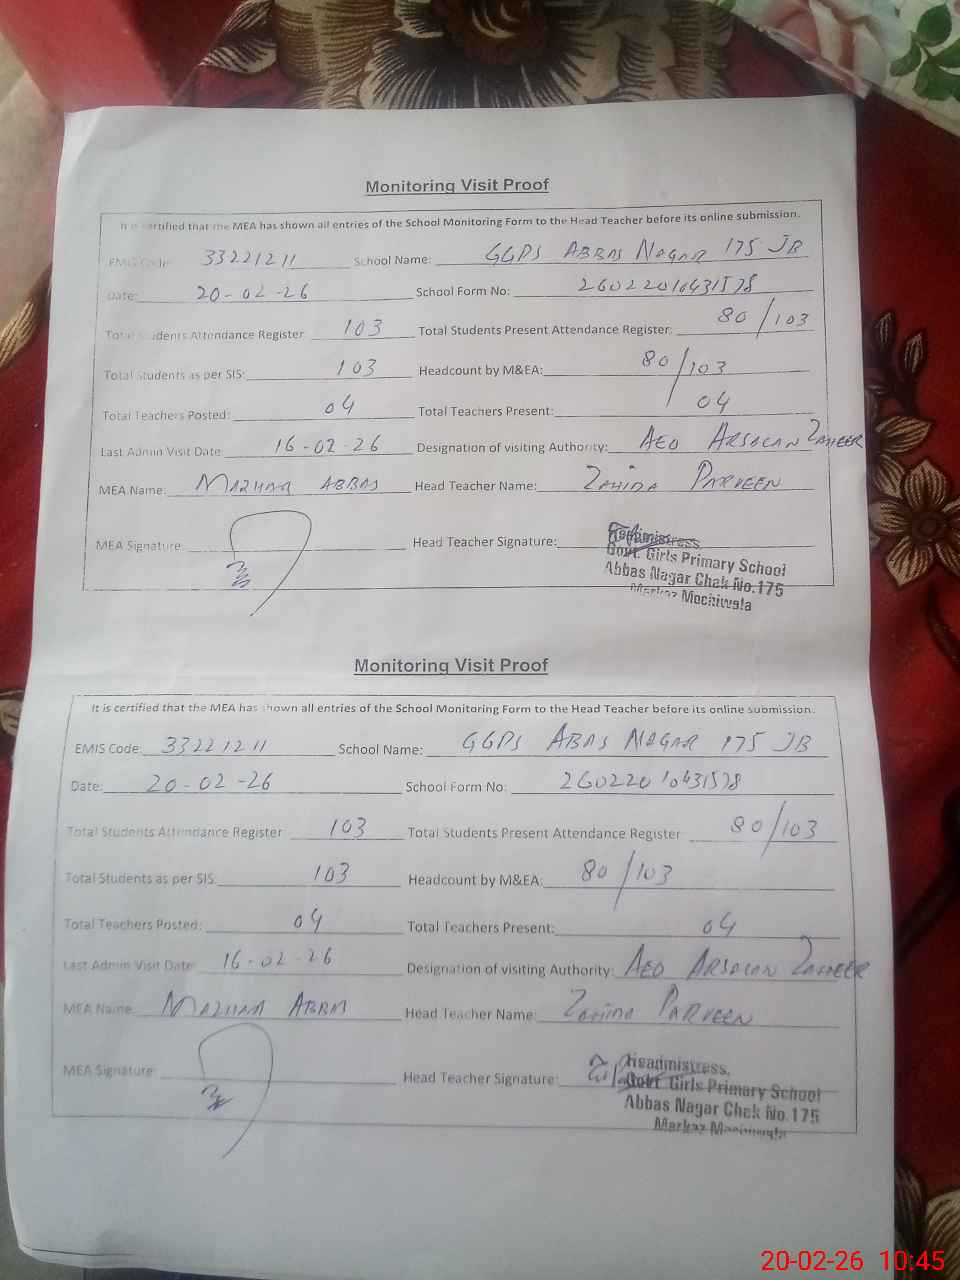 Monitoring Visit Proof
It is certified that the MEA has shown all entries of the School Monitoring Form to the Head Teacher before its online submission.
EMIS Code: 33221211 School Name: GGPS ABBAS NAGAR 175 JB
Date: 20-02-26 School Form No: 26022010431578
Total Students Attendance Register 103 Total Students Present Attendance Register: 80/103
Total Students as per SIS: 103 Headcount by M&EA: 80/103
Total Teachers Posted: 04 Total Teachers Present: 04
Last Admin Visit Date 16-02-26 Designation of visiting Authority: AEO ARSALAN ZAHEER
MEA Name: MAZHAR ABBAS Head Teacher Name: ZAHIDA PARVEEN
MEA Signature: Head Teacher Signature:
Headmistress
Govt. Girls Primary School
Abbas Nagar Chak No.175
Markaz Mochiwala
Monitoring Visit Proof
It is certified that the MEA has shown all entries of the School Monitoring Form to the Head Teacher before its online submission.
EMIS Code: 33221211 School Name: GGPS ABAS NAGAR 175 JB
Date: 20-02-26 School Form No: 26022010431578
Total Students Attendance Register 103 Total Students Present Attendance Register 80/103
Total Students as per SIS: 103 Headcount by M&EA: 80/103
Total Teachers Posted: 04 Total Teachers Present: 04
Last Admin Visit Date 16-02-26 Designation of visiting Authority: AEO ARSALAN ZAHEER
MEA Name: MAZHAR ABBAS Head Teacher Name: ZAHIDA PARVEEN
MEA Signature: Head Teacher Signature:
Headmistress,
Govt. Girls Primary School
Abbas Nagar Chak No.175
Markaz Mochiwala
20-02-26 10:45